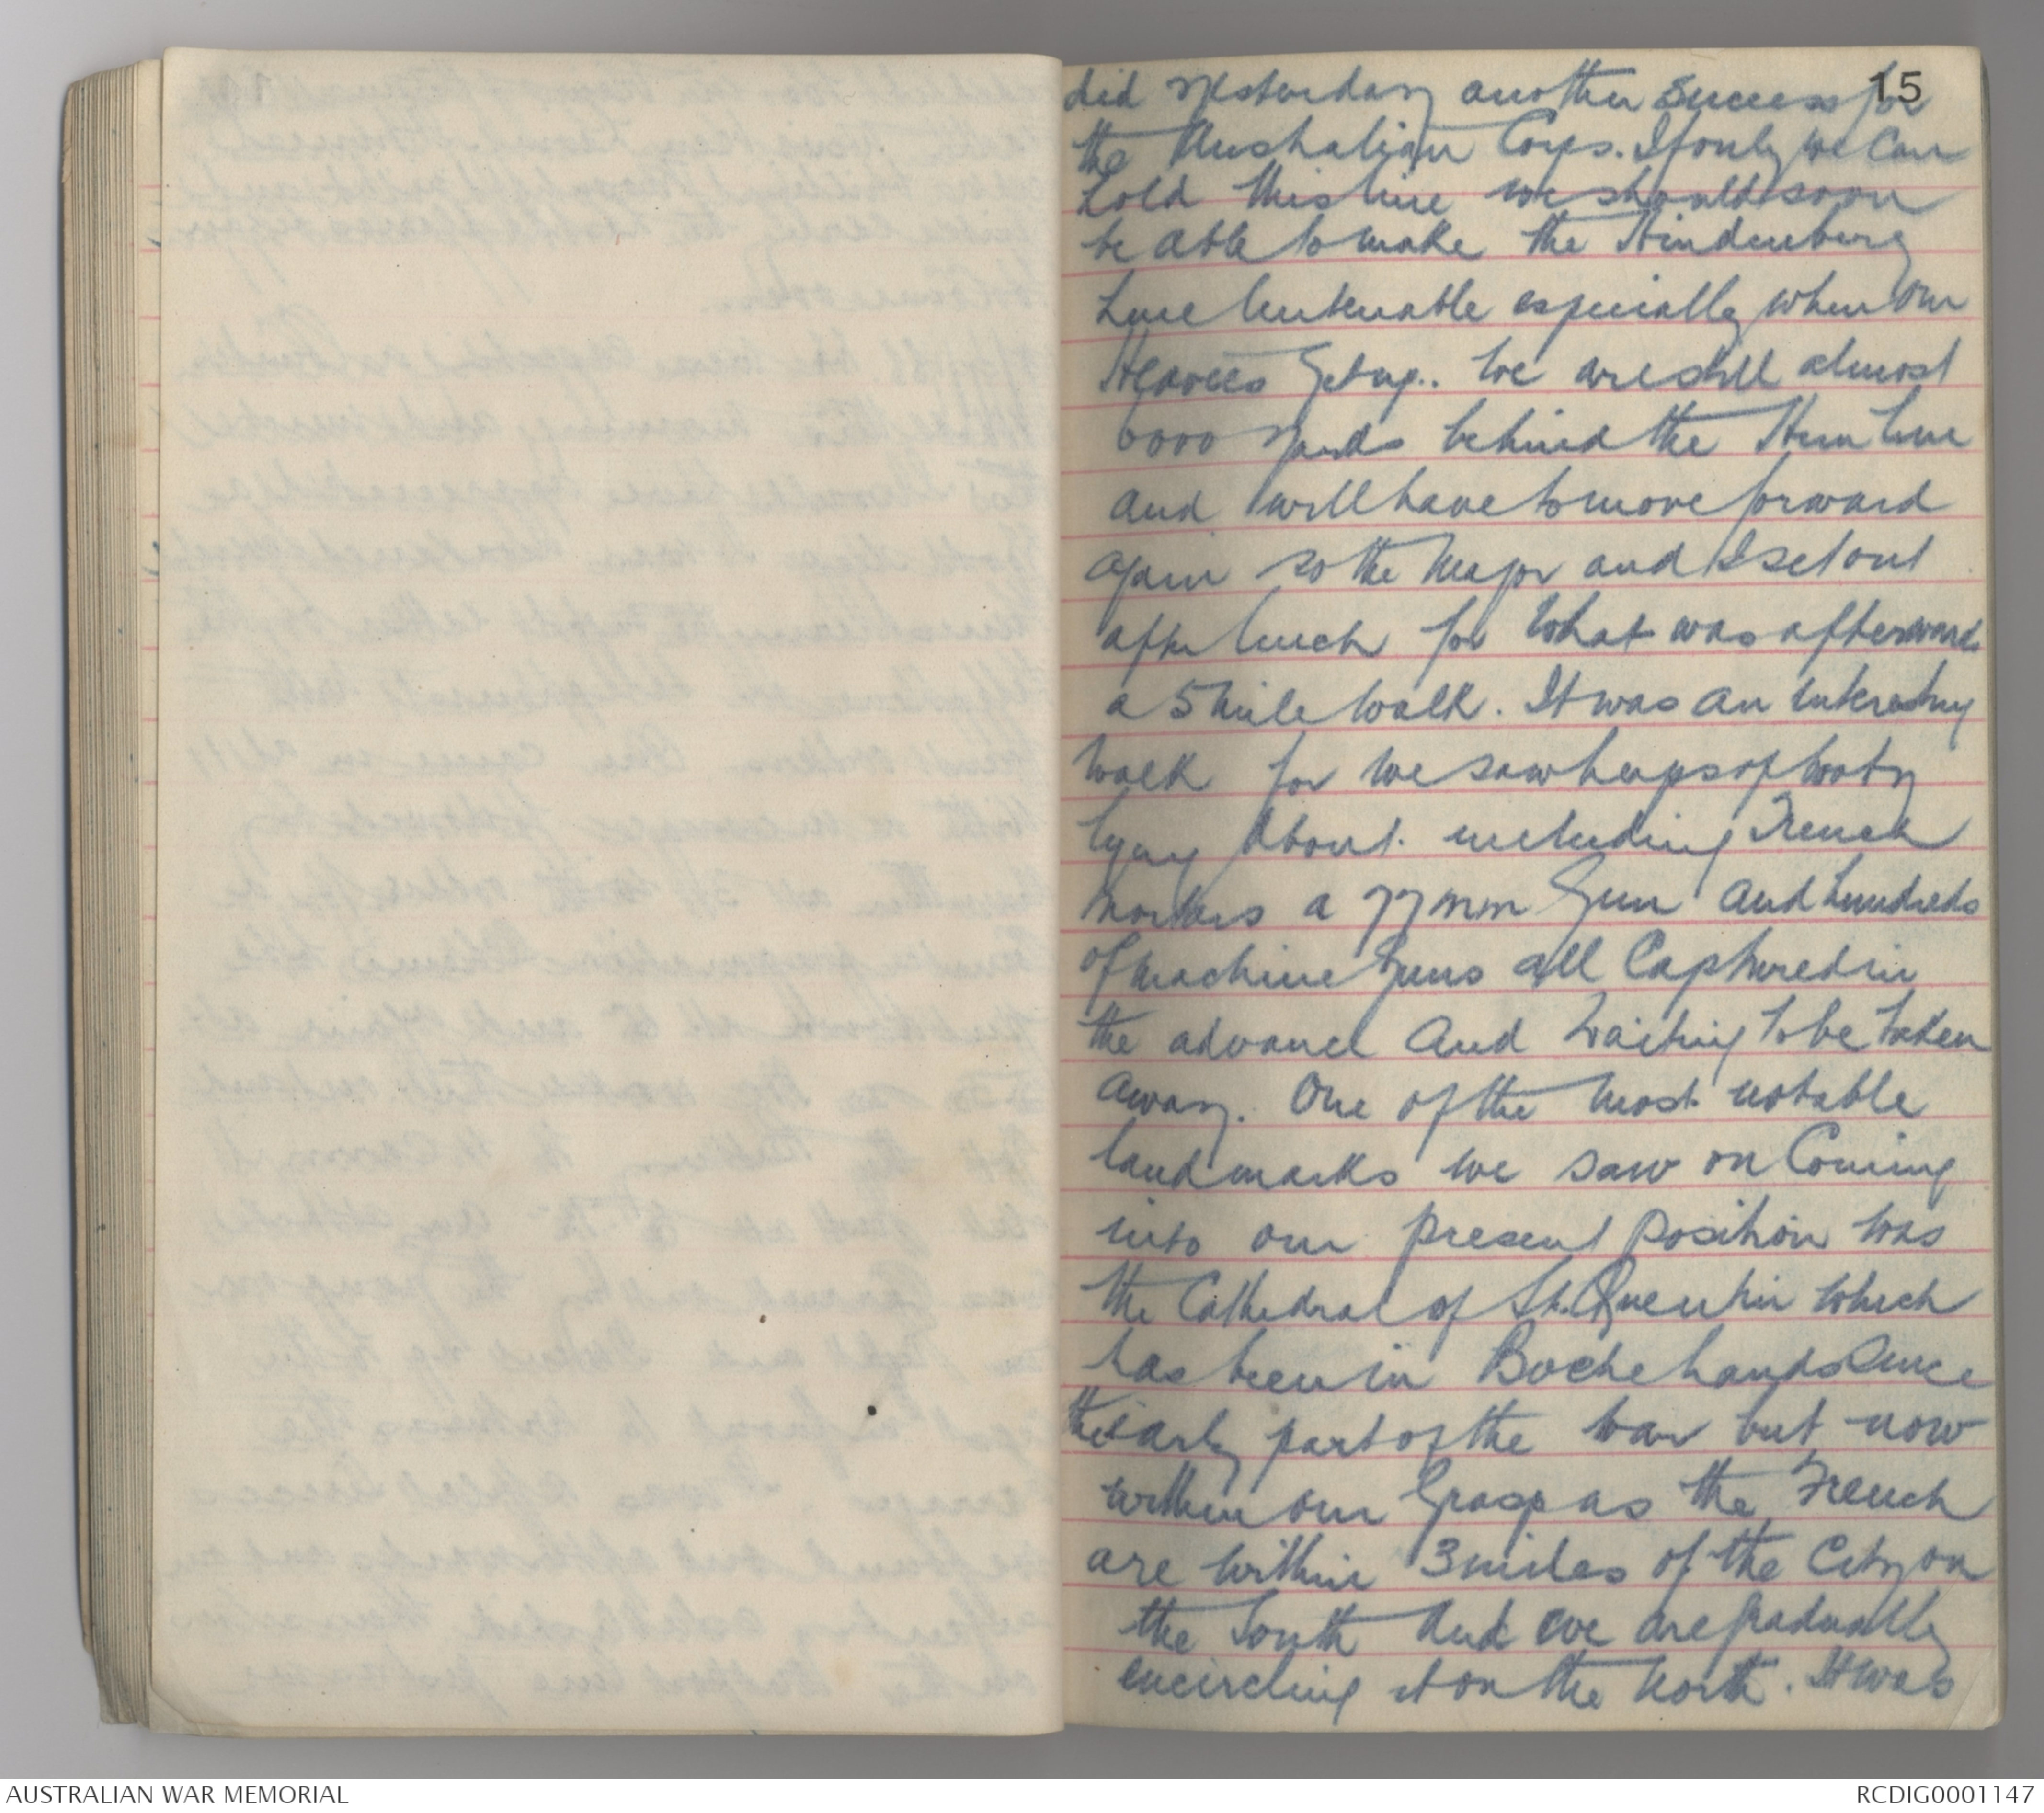 15
did yesterday another success for
the Australian Corps. If only we can
hold this line we should soon
be able to make the Hindenburg
Line Untenable especially when our
Heavies Get up.. We are still almost
6000 yards behind the Hun line
and will have to move forward
again so the Major and I set out
after lunch for what was afterwards
a 5 mile walk. It was an interesting
walk for we saw heaps of booty
lying about. including Trench
Mortars a 77mm Gun and hundreds
of machine Guns all Captured in
the advance and waiting to be taken
away. One of the most notable
landmarks we saw on Coming
into our present position was
the Cathedral of St. Quentin which
has been in Boche hands since
the early part of the war but now
within our Grasp as the French
are within 3 miles of the City on
the South And we are gradually
encircling it on the North. It was
AUSTRALIAN WAR MEMORIAL
RCDIG0001147